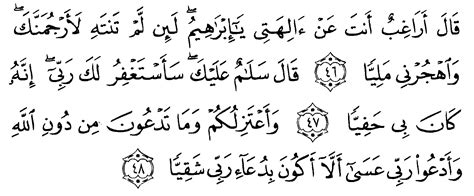 قَالَ أَرَاغِبٌ أَنتَ عَنْ ءَالِهَتِى يَٰٓإِبْرَٰهِيمُ ۖ لَئِن لَّمْ تَنتَهِ لَأَرْجُمَنَّكَ ۖ
وَٱهْجُرْنِى مَلِيًّا ۝٤٦ قَالَ سَلَٰمٌ عَلَيْكَ ۖ سَأَسْتَغْفِرُ لَكَ رَبِّىٓ ۖ إِنَّهُۥ
كَانَ بِى حَفِيًّا ۝٤٧ وَأَعْتَزِلُكُمْ وَمَا تَدْعُونَ مِن دُونِ ٱللَّهِ
وَأَدْعُوا۟ رَبِّى عَسَىٰٓ أَلَّآ أَكُونَ بِدُعَآءِ رَبِّى شَقِيًّا ۝٤٨